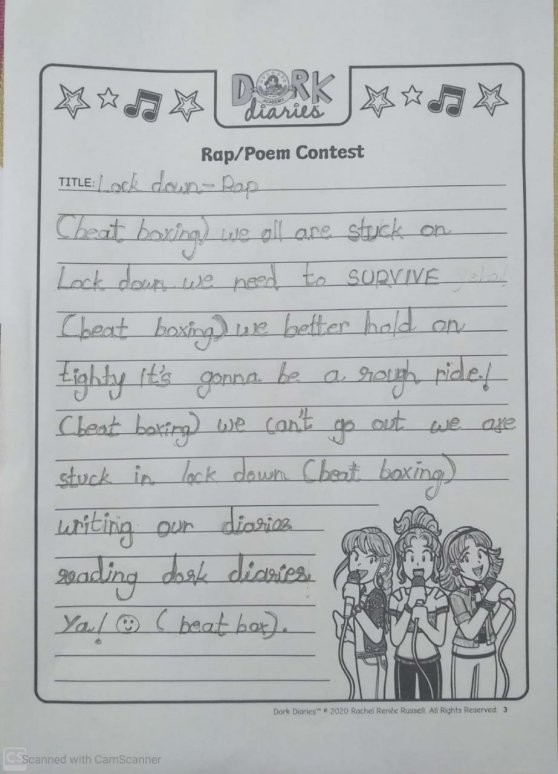 DORK
diaries
Rap/Poem Contest
TITLE: Lock down - Rap
(beat boxing) we all are stuck on
Lock down we need to SURVIVE
(beat boxing) we better hold on
tighty it's gonna be a rough ride!
(beat boxing) we can't go out we are
stuck in lock down (beat boxing)
writing our diaries
reading dork diaries
Ya! ☺ (beat box).
Dork Diaries™ © 2020 Rachel Renée Russell. All Rights Reserved. 3
CS Scanned with CamScanner